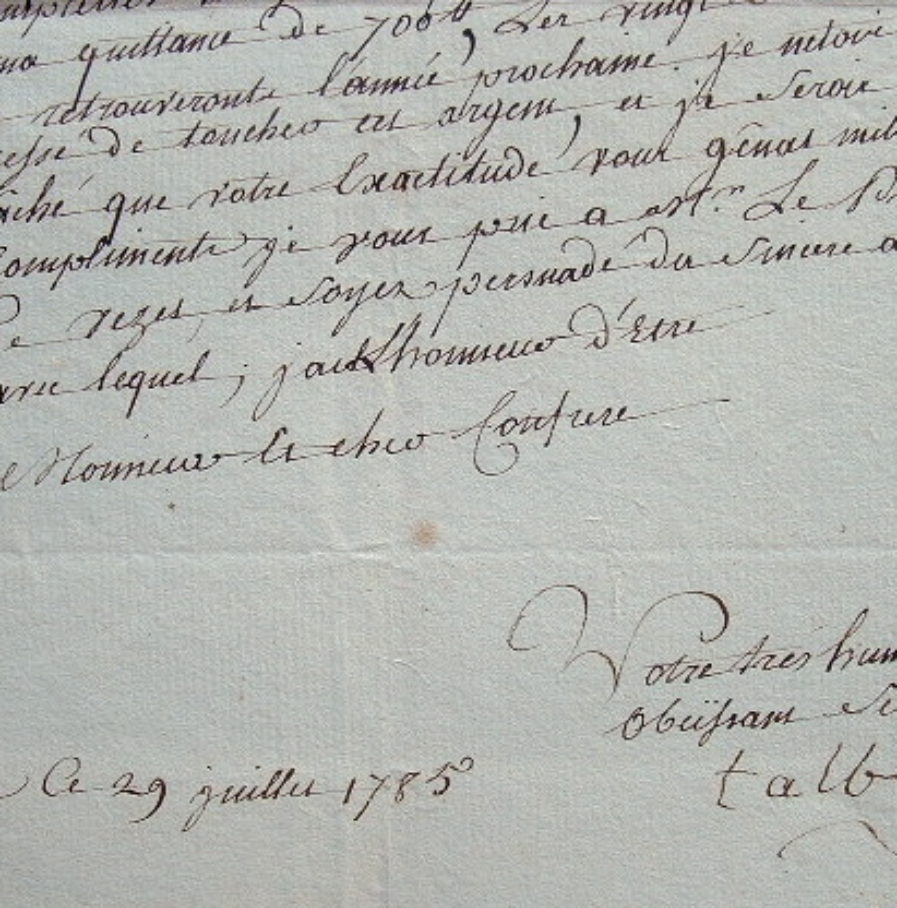 ma quittance de 700tt, Les vingt
retrouveront l'année prochaine. je netoi
de toucher cet argent, et je serois
que votre Exactitude, vous gênat mil
Compliments je vous prie a Le
De vezet, et soyez persuadé du sincere a
avec lequel, j ai L'honneur d'Etre
Monsieur Et cher Confrere
Votre tres hum
Obeissant Se
Ce 29 juillet 1785
talb